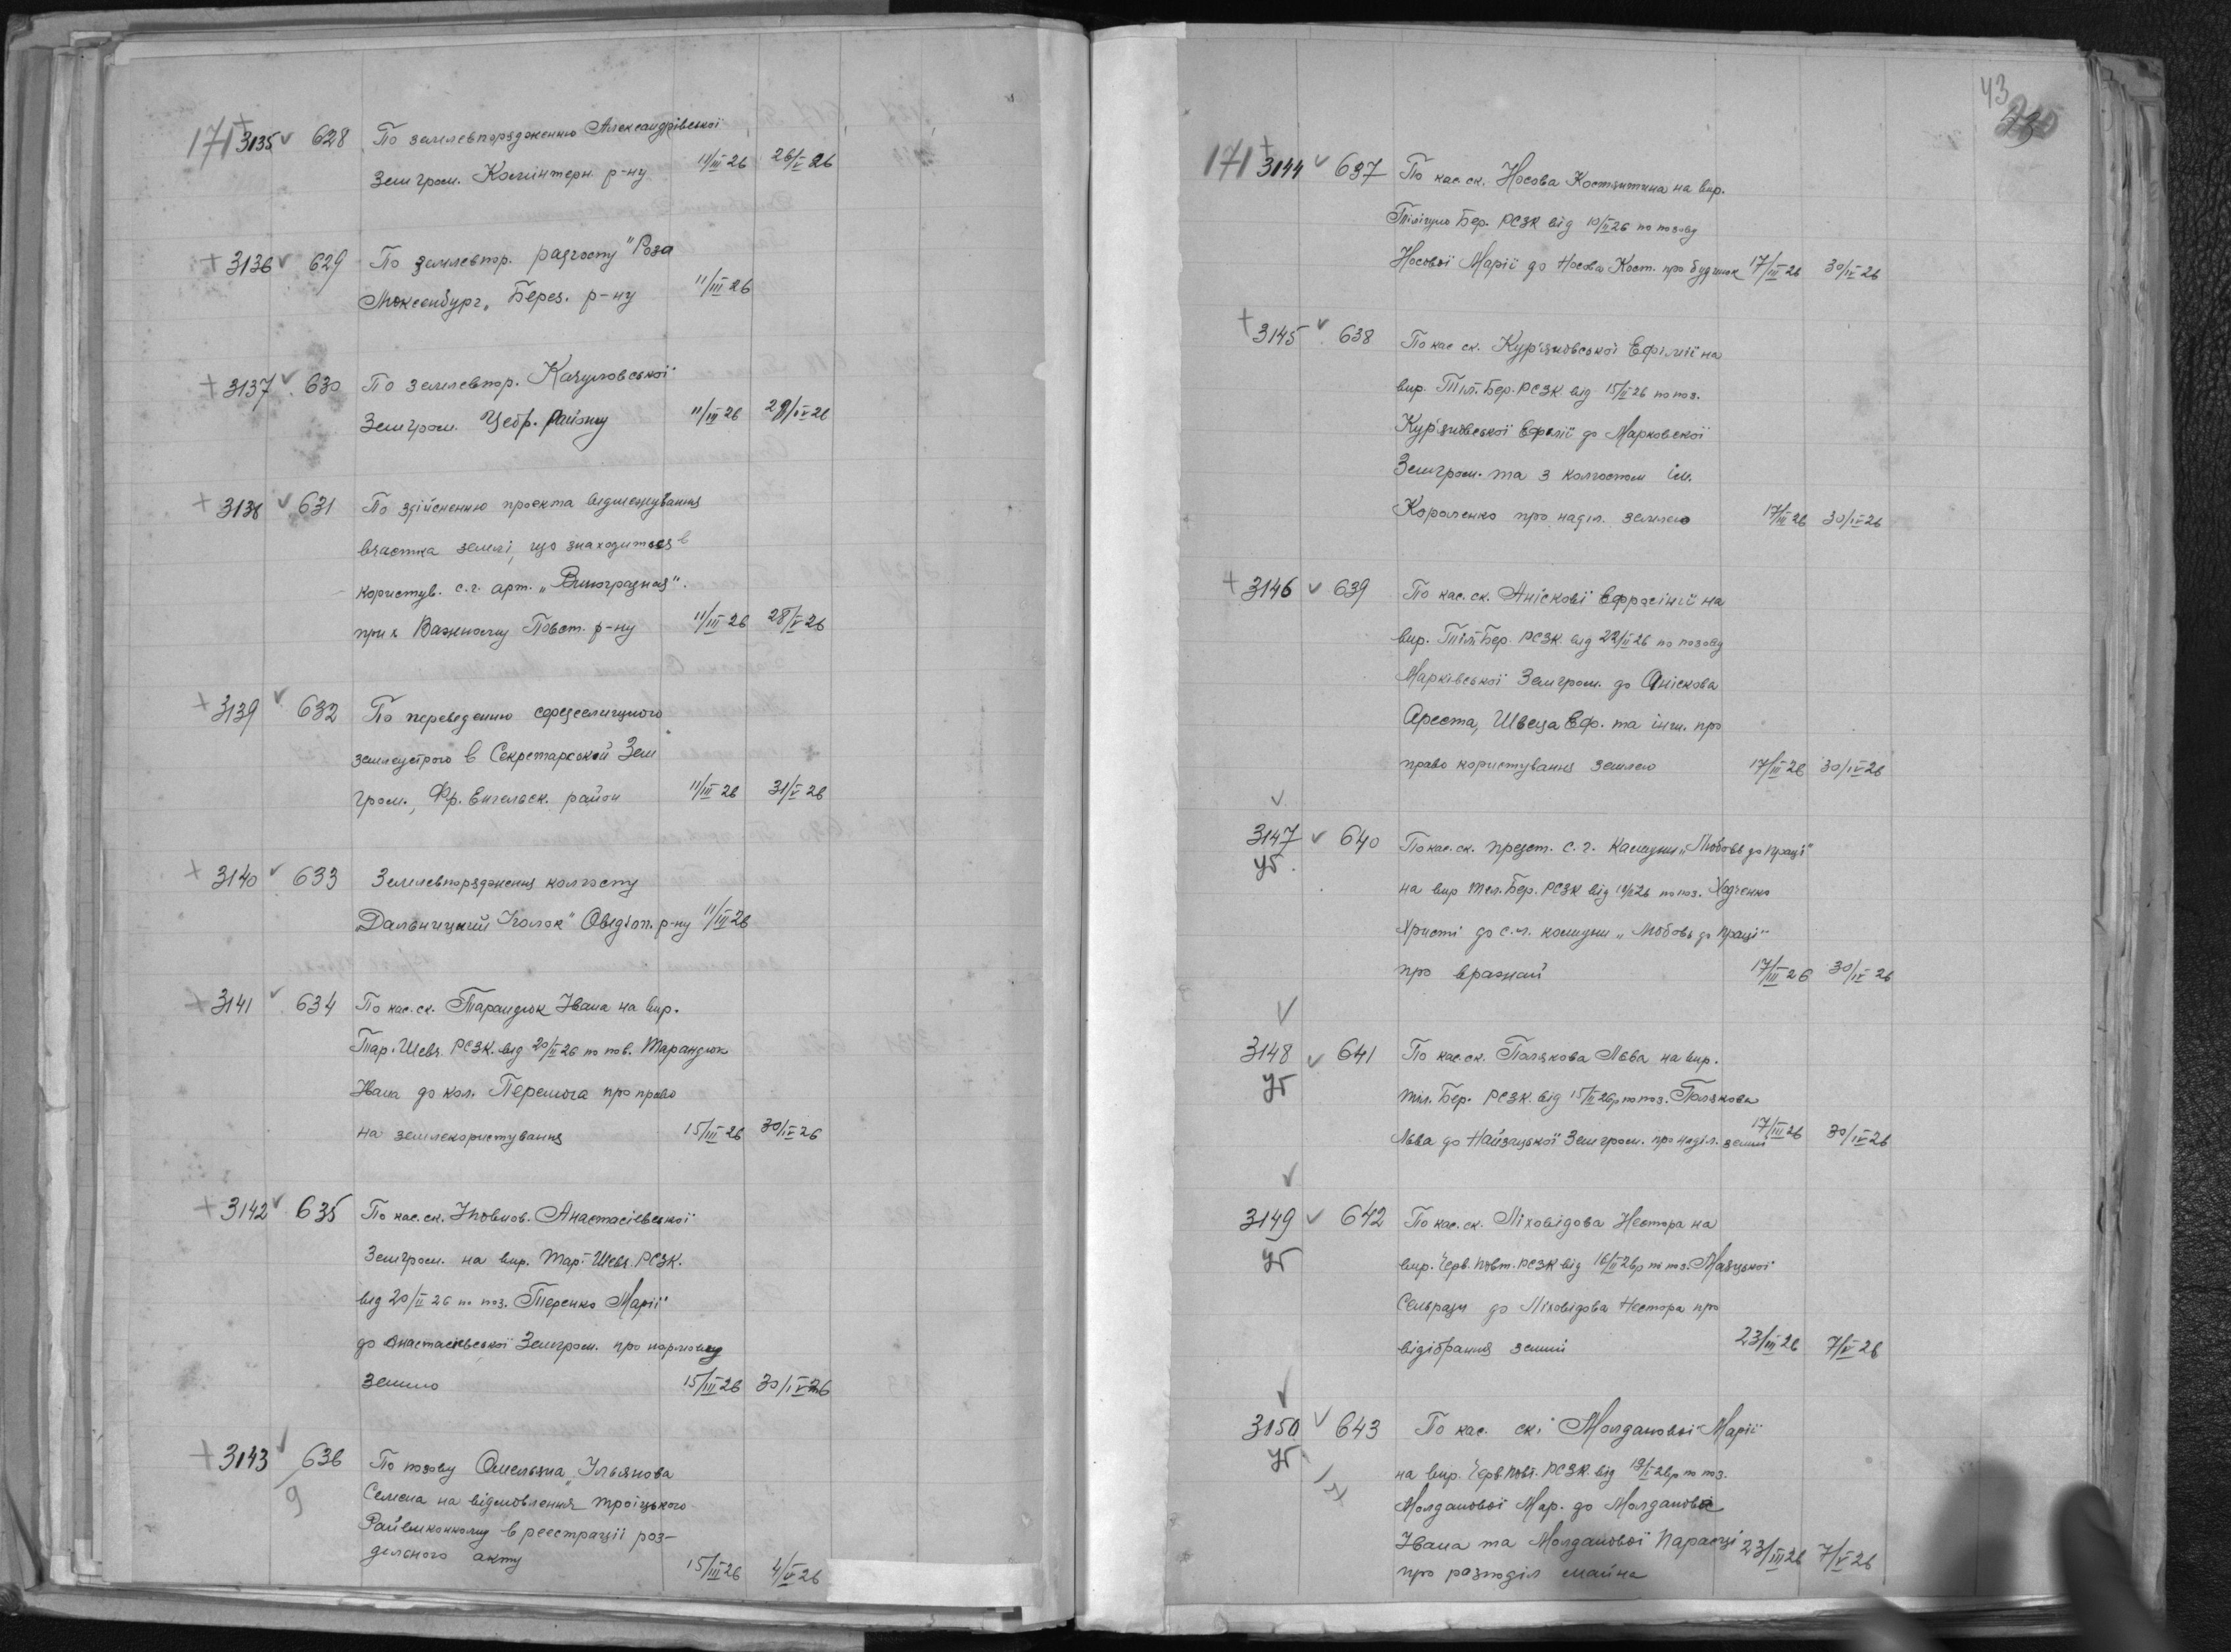 171 + 3135 v 628 По землевпорядженню Александрівської
Земгром. Комінтерн. р-ну 11/III 26 26/V 26
+ 3136 v 629 По землевпор. радгоспу "Роза
Люксембург" Берез. р-ну 11/III 26
+ 3137 v 630 По землевпор. Качуловської
Земгром. Цебр. району 11/III 26 29/IV 26
+ 3138 v 631 По здійсненню проекта відмежування
вчастка землі, що знаходиться в
користув. с.г. арт. „Виноградная".
при х. Важному Повст. р-ну 11/III 26 28/V 26
+ 3139 v 632 По переведенню середселищного
землеустрою в Секретарской Зем
гром., Фр. Енгельск. район 11/III 26 31/V 26
+ 3140 v 633 Землевпорядження колгоспу
Дальницкий Уголок" Овідіоп. р-ну 11/III 26
+ 3141 v 634 По кас. ск. Тарандюк Івана на вир.
Тар. Шевч. РСЗК. від 20/II 26 по поз. Тарандюк
Івана до кол. Перемога про право
на землекористування 15/III 26 30/IV 26
+ 3142 v 635 По кас. ск. Уповнов. Анастасіевської
Земгром. на вир. Тар.-Шевч. РСЗК.
від 20/II 26 по поз. Теренко Марії
до Анастасіевської Земгром. про нормовку
землю 15/III 26 30/IV 26
+ 3143 v 636 По позову Омельяна Ульянова
9
Семена на відмовлення Троіцького
Райвиконкому в реєстрації роз-
дельного акту 15/III 26 4/V 26
43
171 + 3144 v 637 По кас. ск. Носова Костянтина на вир.
Тілігуло Бер. РСЗК від 10/II 26 по позову
Носової Марії до Носова Кост. про будинок 17/III 26 30/IV 26
+ 3145 v 638 По кас. ск. Кур'яновської Ефімії на
вир. Тіл. Бер. РСЗК від 15/II 26 по поз.
Кур'яновської Ефімії до Марковскої
Земгром. та з колгоспом ім.
Короленко про наділ. землею 17/III 26 30/IV 26
+ 3146 v 639 По кас. ск. Аніскові Ефросінії на
вир. Тіл. Бер. РСЗК від 22/II 26 по позову
Марківської Земгром. до Аніскова
Ареста, Швеца Еф. та інш. про
право користування землею 17/III 26 30/IV 26
v
3147 v 640 По кас. ск. предст. с. г. камуни „Любовь до праці"
уг.
на вир. Тіл. Бер. РСЗК від 18/II 26 по поз. Ходченко
Христі до с.г. комуни „Любовь до праці"
про вражай 17/III 26 30/IV 26
v
3148 v 641 По кас. ск. Полякова Льва на вир.
уг
Тіл. Бер. РСЗК від 15/II 26р по поз. Полякова
Льва до Найзацької Земгром. про наділ. землі 17/III 26 30/IV 26
v
3149 v 642 По кас. ск. Ліховідова Нестора на
уг
вир. Черв. Повт. РСЗК від 16/II 26р по поз. Маяцької
Сельради до Ліховідова Нестора про
відібрання землі 23/III 26 7/V 26
v
3150 v 643 По кас. скі Молданової Марії
уг
на вир. Черв. Повт. РСЗК. від 19/I 26р по поз.
Молданової Мар. до Молданова
Івана та Молданової Парасці 23/III 26 7/V 26
про розподіл майна